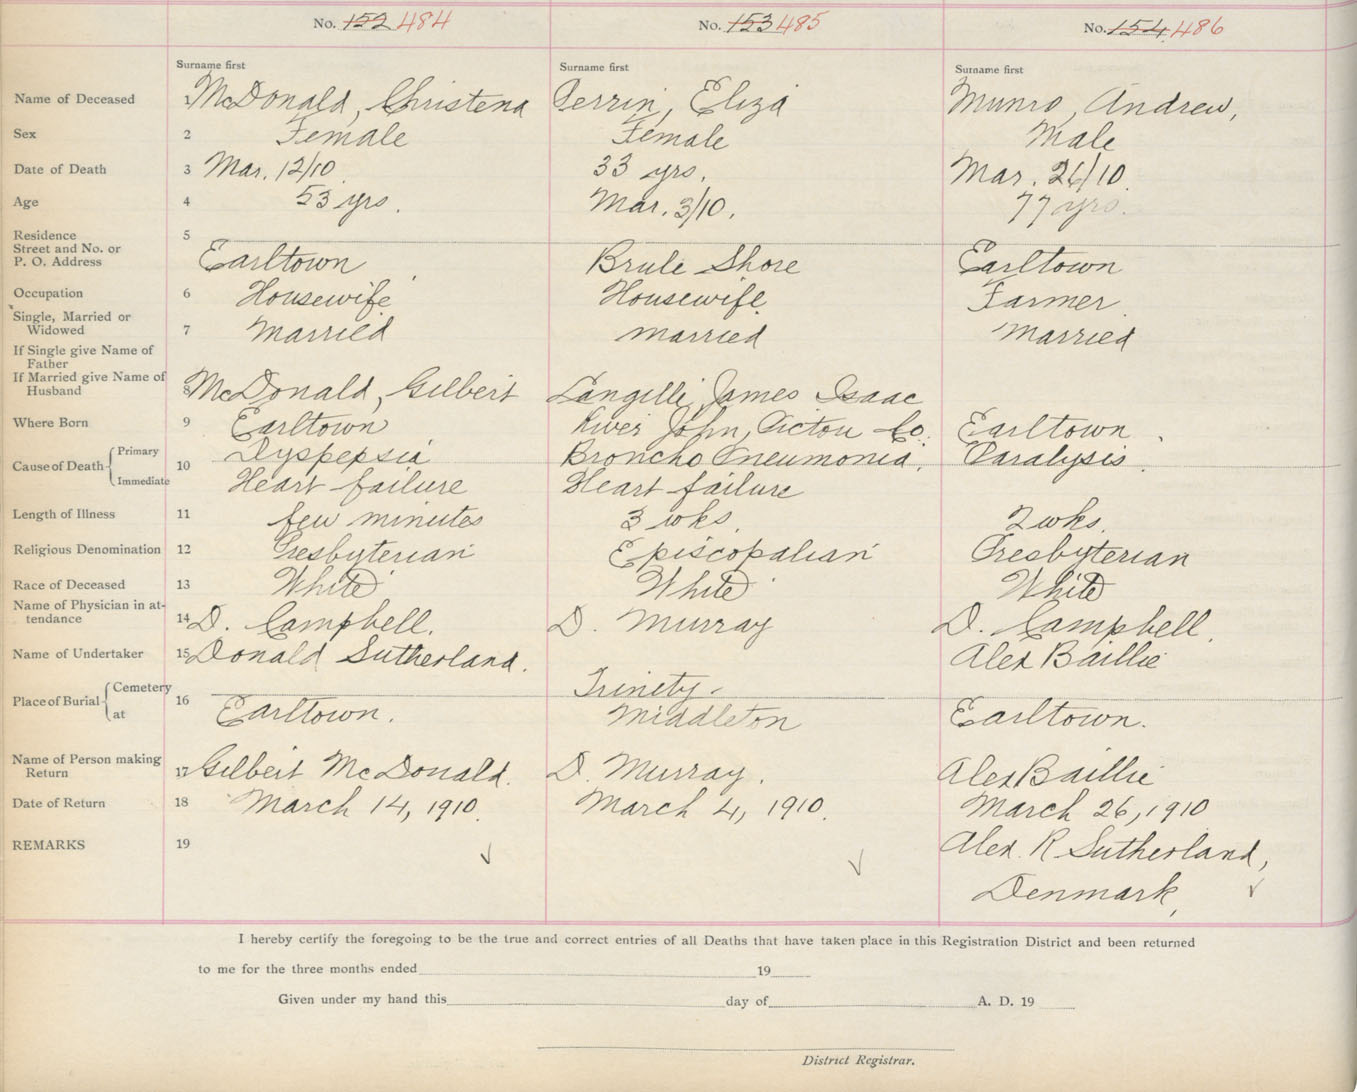 No. 152 484 No. 153 485 No. 154 486
Surname first Surname first Surname first
Name of Deceased 1 McDonald, Christena Perrin, Eliza Munro, Andrew,
Sex 2 Female Female Male
Date of Death 3 Mar. 12/10 33 yrs. Mar. 26/10.
Age 4 53 yrs. Mar. 3/10. 77 yrs.
Residence 5
Street and No. or
P. O. Address Earltown Brule Shore Earltown
Occupation 6 Housewife Housewife Farmer
Single, Married or
Widowed 7 Married Married Married
If Single give Name of
Father
If Married give Name of
Husband 8 McDonald, Gilbert Langille, James Isaac
Where Born 9 Earltown River John, Pictou Co. Earltown
Cause of Death Primary 10 Dyspepsia Broncho Pneumonia. Paralysis
Immediate Heart failure Heart failure
Length of Illness 11 few minutes 3 wks. 2 wks.
Religious Denomination 12 Presbyterian Episcopalian Presbyterian
Race of Deceased 13 White White White
Name of Physician in at-
tendance 14 D. Campbell. D. Murray D. Campbell.
Name of Undertaker 15 Donald Sutherland. Alex Baillie
Place of Burial Cemetery 16 Trinity
at Earltown. Middleton Earltown.
Name of Person making
Return 17 Gilbert McDonald. D. Murray. Alex Baillie
Date of Return 18 March 14, 1910. March 4, 1910. March 26, 1910
REMARKS 19 Alex. R Sutherland,
Denmark,
I hereby certify the foregoing to be the true and correct entries of all Deaths that have taken place in this Registration District and been returned
to me for the three months ended 19
Given under my hand this day of A. D. 19
District Registrar.